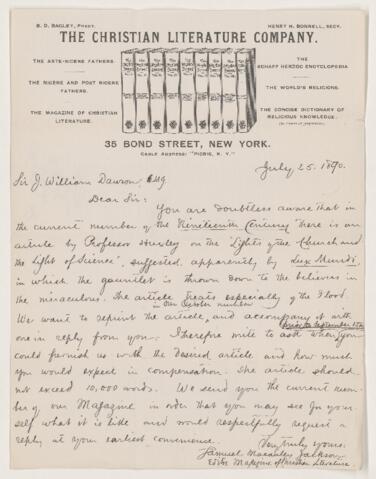 B. D. BAGLEY, PREST.
HENRY H. BONNELL, SECY.
THE CHRISTIAN LITERATURE COMPANY.
THE ANTE-NICENE FATHERS.
THE NICENE AND POST NICENE FATHERS.
THE MAGAZINE OF CHRISTIAN LITERATURE.
THE SCHAFF HERZOG ENCYCLOPEDIA
THE WORLD'S RELIGIONS.
THE CONCISE DICTIONARY OF RELIGIOUS KNOWLEDGE.
35 BOND STREET, NEW YORK.
CABLE ADDRESS: "PICBIS, N. Y."
July 25. 1890.
Sir J. William Dawson, CMG
Dear Sir:
You are doubtless aware that in
the current number of the Nineteenth Century there is an
article by Professor Huxley on the "Lights of the Church and
the Light of Science", suggested apparently by Lux Mundi,
in which the gauntlet is thrown down to the believers in
the miraculous. The article treats especially of the Flood.
in our October number
We want to reprint the article, and accompany it with
prior to September 1st
one in reply from you. I therefore write to ask when you
could furnish us with the desired article and how much
you would expect in compensation. The article should
not exceed 10,000 words. We send you the current num-
ber of our Magazine in order that you may see for your-
self what it is like and would respectfully request a
reply at your earliest convenience.
Very truly yours,
Samuel Macauley Jackson
Editor Magazine of Christian Literature.